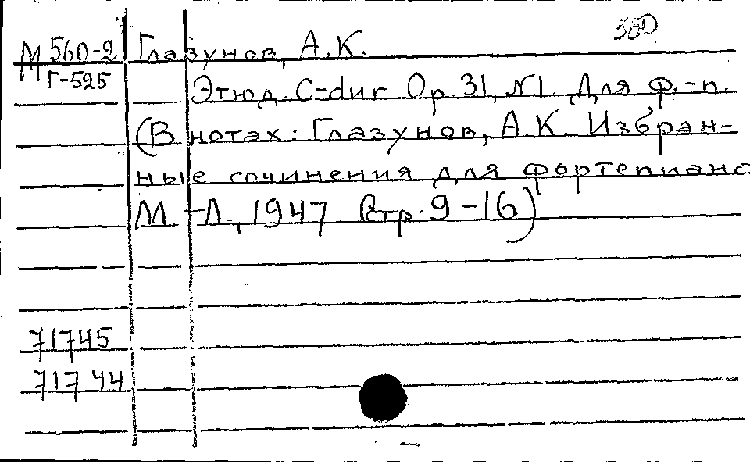 380
М 560-2 Глазунов, А.К.
Г-525
Этюд. C-dur Op. 31, N1. Для ф.-п.
(В нотах: Глазунов, А.К. Избран-
ные сочинения для фортепиано
М.-Л., 1947 Стр. 9-16)
71745
71744